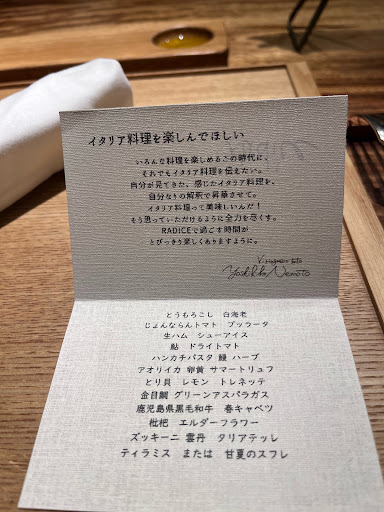 イタリア料理を楽しんでほしい
いろんな料理を楽しめるこの時代に、
それでもイタリア料理を伝えたい。
自分が見てきた、感じたイタリア料理を、
自分なりの解釈で昇華させて。
イタリア料理って美味しいんだ！
そう思っていただけるように全力を尽くす。
RADICEで過ごす時間が
とびっきり楽しくありますように。
Yoshihiko Nemoto
とうもろこし　白海老
じょんならんトマト　ブッラータ
生ハム　シューアイス
鮎　ドライトマト
ハンカチパスタ 鰻 ハーブ
アオリイカ 卵黄 サマートリュフ
とり貝　レモン　トレネッテ
金目鯛 グリーンアスパラガス
鹿児島県黒毛和牛　春キャベツ
枇杷　エルダーフラワー
ズッキーニ 雲丹　タリアテッレ
ティラミス　または　甘夏のスフレ